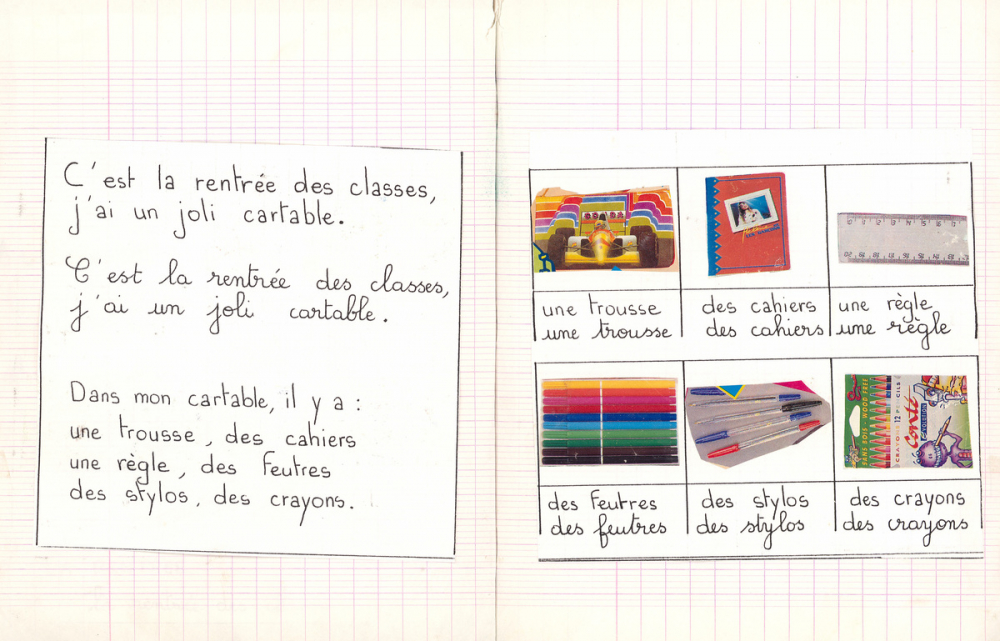 C'est la rentrée des classes,
j'ai un joli cartable.
C'est la rentrée des classes,
j'ai un joli cartable.
Dans mon cartable, il y a :
une trousse, des cahiers
une règle, des feutres
des stylos, des crayons.
une trousse
une trousse
des cahiers
des cahiers
une règle
une règle
des feutres
des feutres
des stylos
des stylos
des crayons
des crayons
SANS BOIS - WOOD FREE
12 PENCILS
Conté